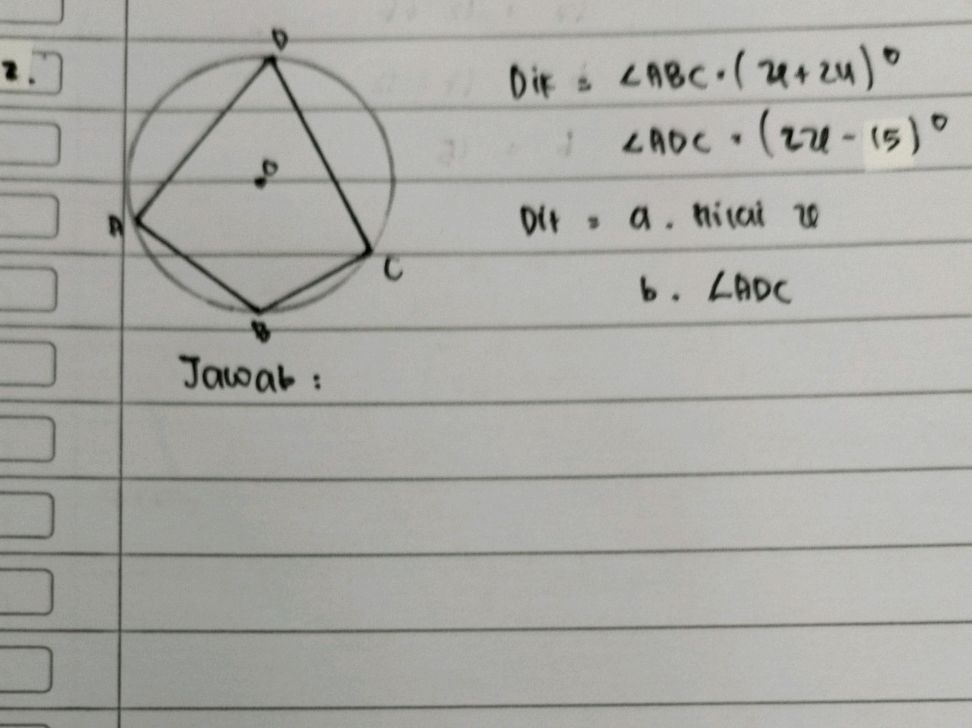 2.
D
Dik : ∠ABC = (x + 24)°
∠ADC = (2x - 15)°
O
A
Dit = a. nilai x
C
b. ∠ADC
B
Jawab :